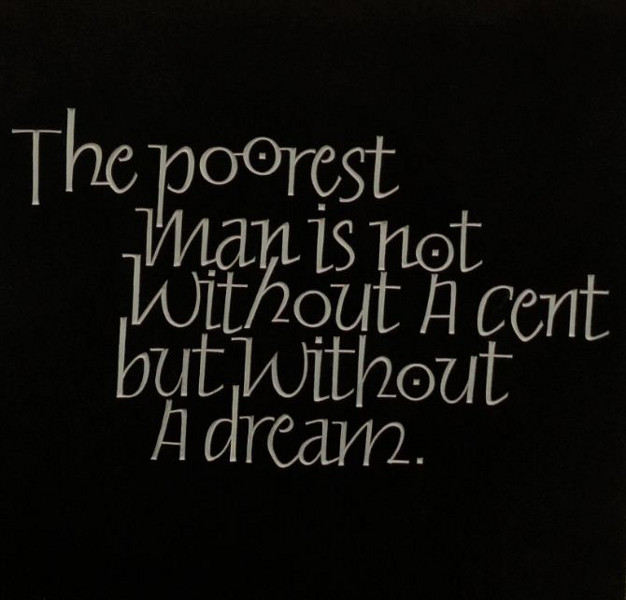 The poorest
man is not
Without A cent
but Without
A dream.